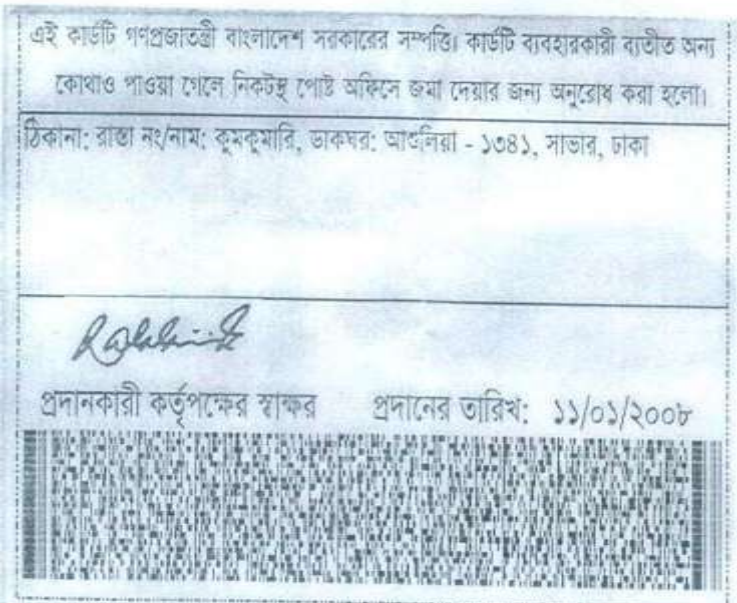 এই কার্ডটি গণপ্রজাতন্ত্রী বাংলাদেশ সরকারের সম্পত্তি। কার্ডটি ব্যবহারকারী ব্যতীত অন্য
কোথাও পাওয়া গেলে নিকটস্থ পোষ্ট অফিসে জমা দেয়ার জন্য অনুরোধ করা হলো।
ঠিকানা: রাস্তা নং/নাম: কুমকুমারি, ডাকঘর: আশুলিয়া - ১৩৪১, সাভার, ঢাকা
প্রদানকারী কর্তৃপক্ষের স্বাক্ষর প্রদানের তারিখ: ১১/০১/২০০৮